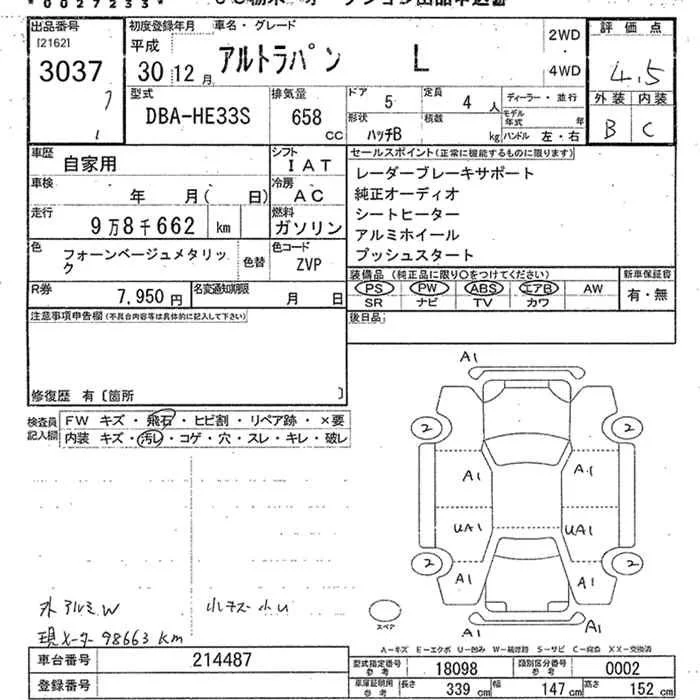 *0027233*
出品番号
[2162]
3037
7
1
初度登録年月
平成
30 12月
車名・グレード
アルトラパン L
2WD
・
4WD
評価点
4.5
外装 内装
B C
型式
DBA-HE33S
排気量
658
CC
ドア
5
定員
4 人
形状
ハッチB
積数
kg
ディーラー・並行
モデル年式 年
ハンドル 左・右
車歴
自家用
シフト
IAT
車検
年 月( 日)
冷房
AC
走行
9万8千662 km
燃料
ガソリン
色
フォーンベージュメタリック
色替
色コード
ZVP
R券
7,950 円
名変通知期限
月 日
セールスポイント(正常に機能するものに限ります)
レーダーブレーキサポート
純正オーディオ
シートヒーター
アルミホイール
プッシュスタート
装備品(純正品に限り○をつけてください)
PS PW ABS エアB AW
SR ナビ TV カワ
新車保証書
有・無
注意事項申告欄(不具合内容等は具体的に記入して下さい)
後日品
修復歴 有〔箇所 〕
検査員記入欄
FW キズ・飛石・ヒビ割・リペア跡・×要
内装 キズ・汚レ・コゲ・穴・スレ・キレ・破レ
A1
2 2
A1 A1
UA1 UA1
2 2
A1 A1
A1
スペア
外アルミW
小キズ小U
現メーター98663km
A-キズ E-エクボ U-凹み
S-サビ
XX-交換済
車台番号
214487
登録番号
型式指定番号
参考
18098
類別区分番号
参考
0002
車庫証明用
参考
長さ
339 cm
幅
147 cm
高さ
152 cm